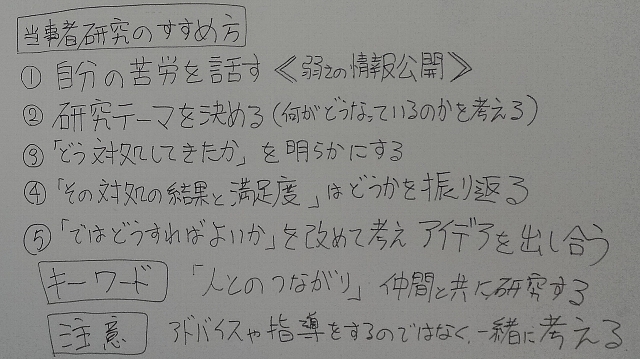 当事者研究のすすめ方
① 自分の苦労を話す ≪弱さの情報公開≫
② 研究テーマを決める(何がどうなっているのかを考える)
③ 「どう対処してきたか」を明らかにする
④ 「その対処の結果と満足度」はどうかを振り返る
⑤ 「ではどうすればよいか」を改めて考え アイデアを出し合う
キーワード 「人とのつながり」 仲間と共に研究する
注意 アドバイスや指導をするのではなく、一緒に考える